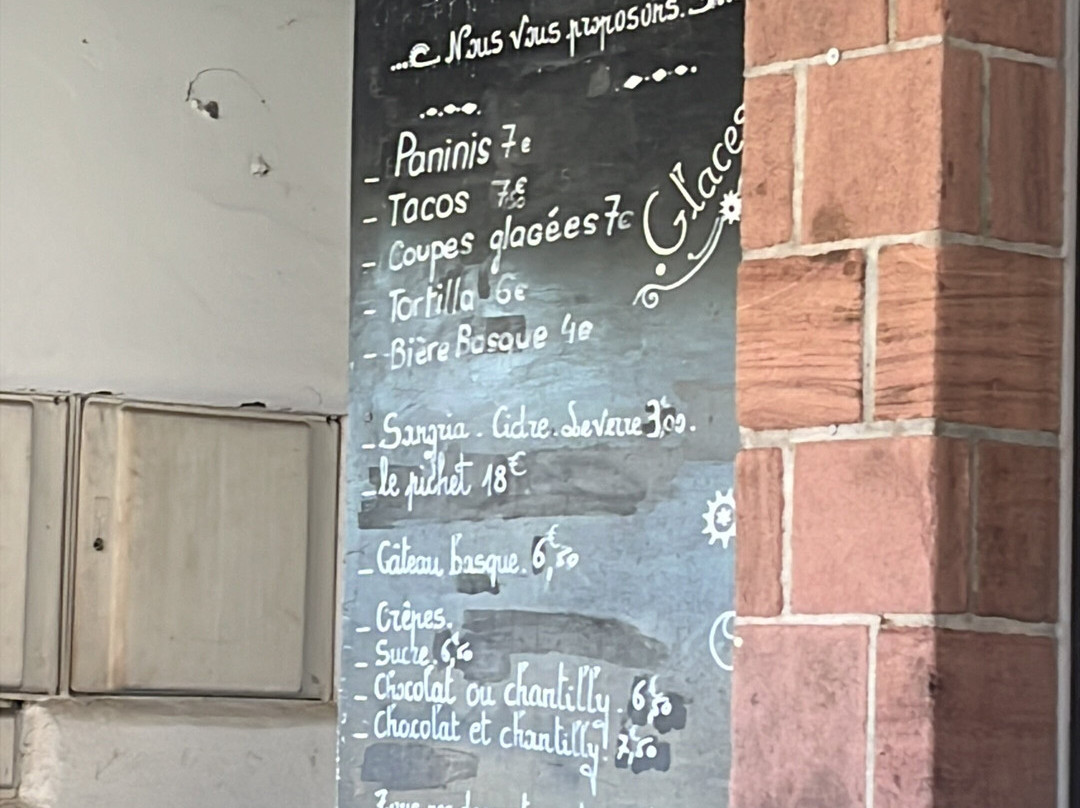 ...Nous Vous proposons...
- Paninis 7e
- Tacos 7,50€
- Coupes glacées 7€
Glaces
- Tortilla 6€
- Bière Basque 4e
- Sangria. Cidre. Le Verre 3,00€.
- le pichet 18€
- Gâteau basque. 6,50€
- Crêpes.
- Sucre. 6,50€
- Chocolat ou chantilly. 6,50€
- Chocolat et chantilly. 7,50€